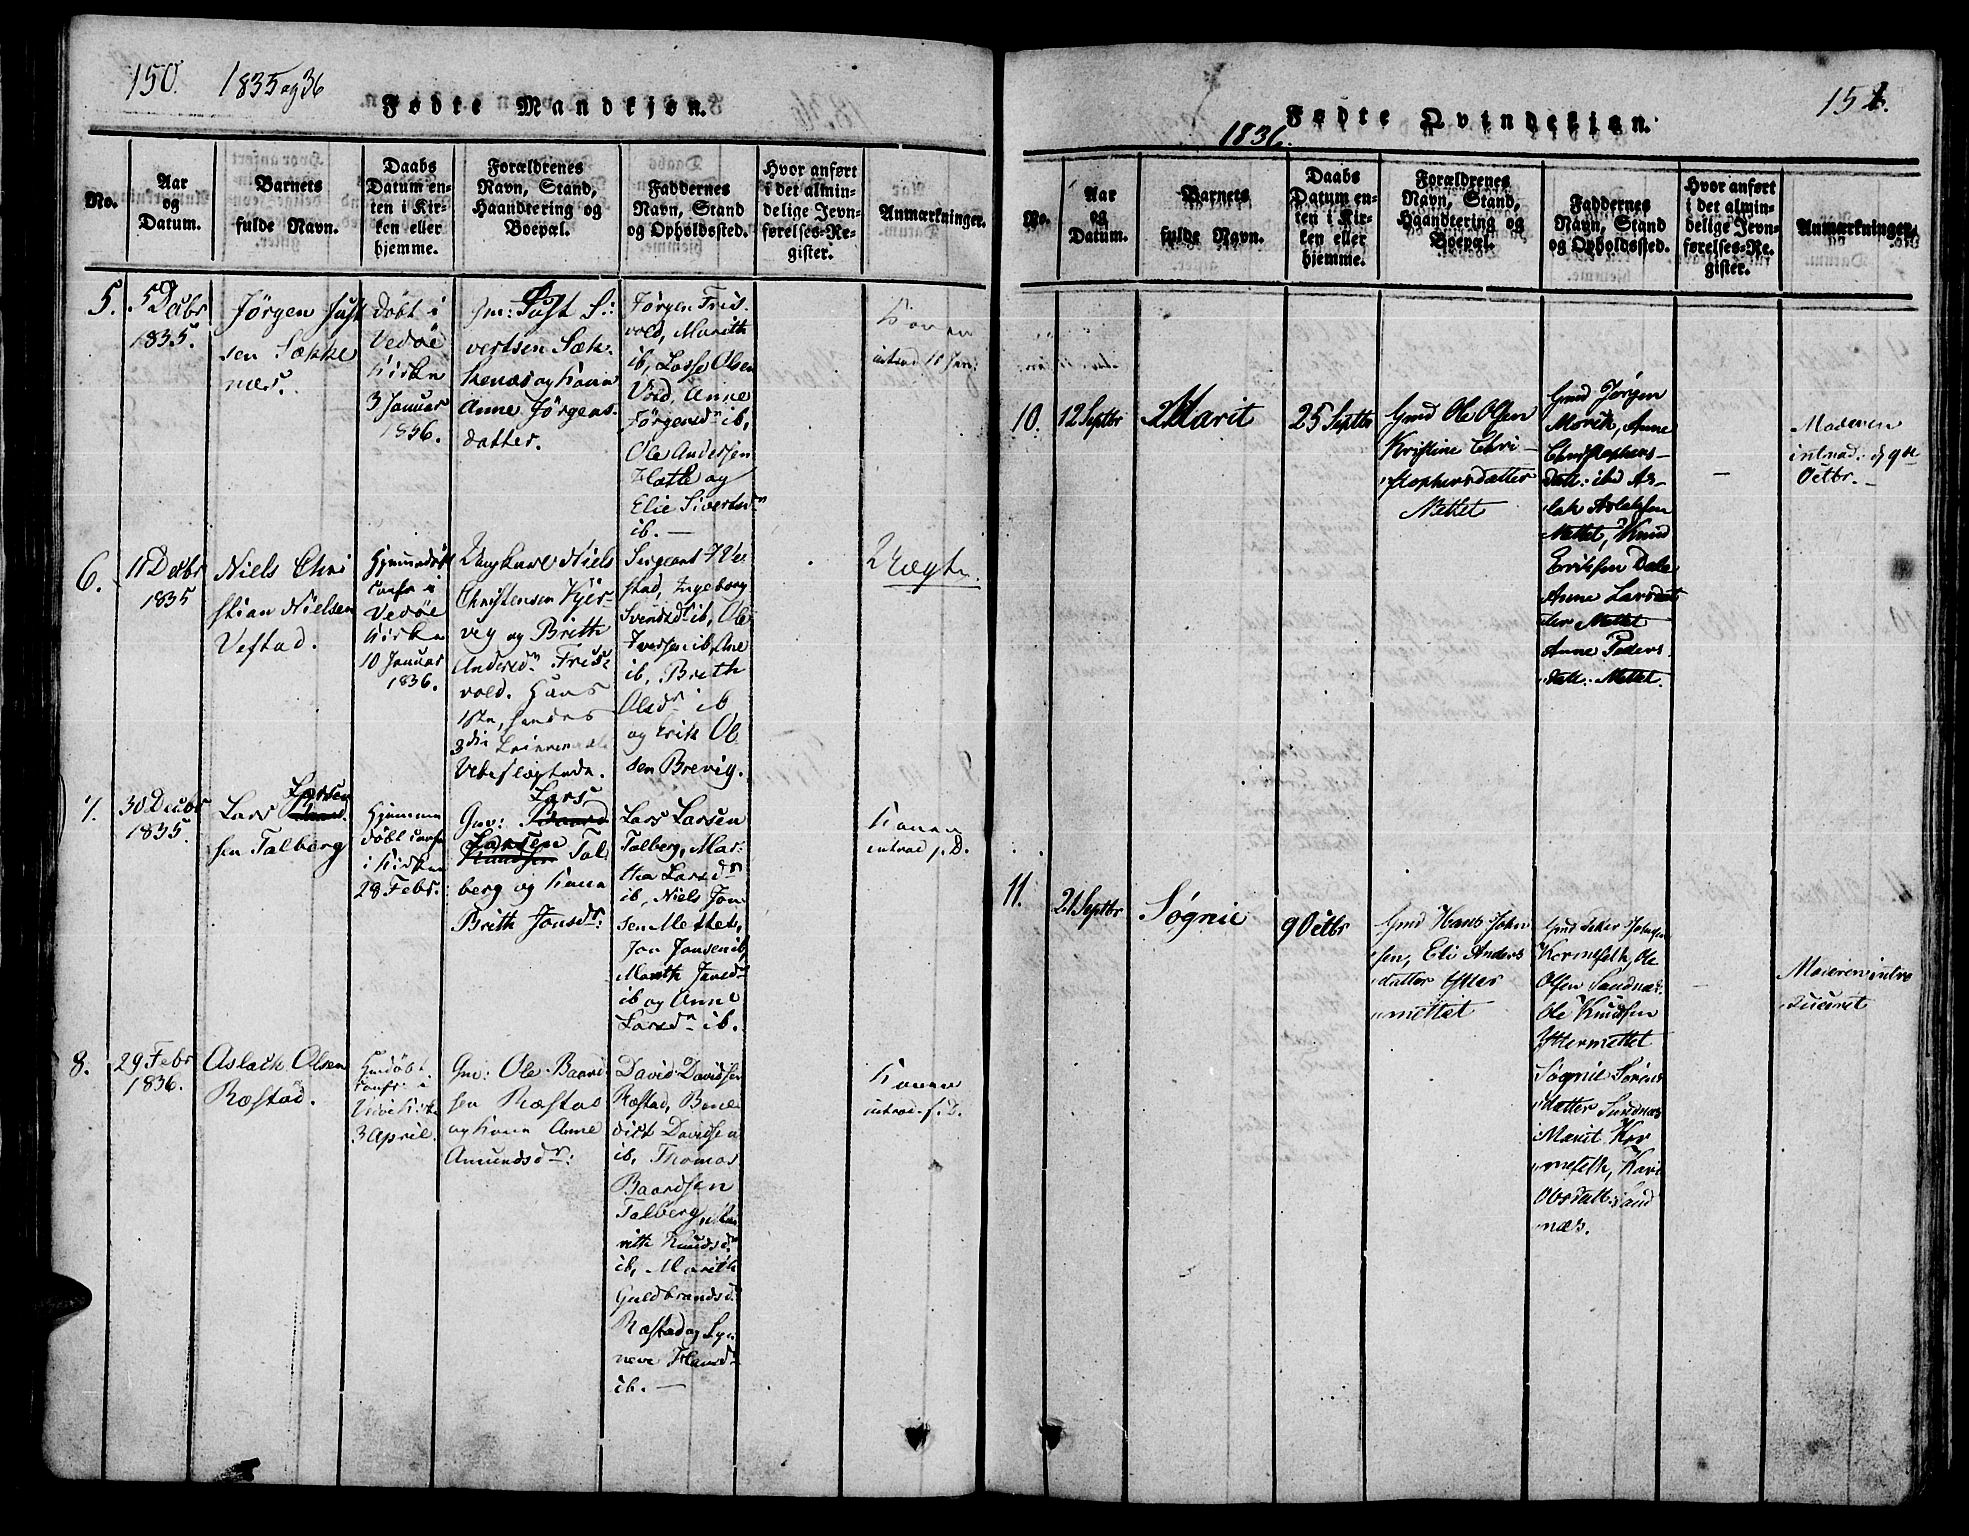 150. 1835 og 36
Fødte Mandkjøn.
No.
Aar
og
Datum.
Barnets
fulde Navn.
Daabs
Datum en-
ten i Kir-
ken eller
hjemme.
Forældrenes
Navn, Stand,
Haandtering og
Boepæl.
Faddernes
Navn, Stand
og Opholdssted.
Hvor anført
i det almin-
delige Jevn-
førelses-Re-
gister.
Anmærkninger.
5.
5 Decbr
1835.
Jørgen Just
sen Sække
næs.
Døbt i
Vedøe
Kirke
3 Januar
1836.
Gm: Just S:
vertsen Sæk
kenæs og Kone
Anne Jørgens-
datter.
Jørgen Fris
vold, Marith
ib, Lasse Olsen
Vold, Anne
Jørgensdr ib,
Ole Andersen
Hatle og
Elie Sivertsdr
ib. —
Konen
introd
6.
11 Decbr
1835
Niels Chri
stian Nielsen
Vestad.
Hjemmedøbt
confr i
Vedøe
Kirke
10 Januar
1836.
Ungkarl Niels
Christensen Kjer-
vey og Brithe
Andersdr Fris
vold. Hans
1ste, hendes
3die Leiermaal
Ubeslægtede.
Sergeant
stad, Ingeborg
Svendsdr ib, Ole
Iversen ib, Ane
ib, Brith
Olsdr ib
og Erik Ol
sen Brevig.
Uægte.
7.
30 Decbr
1835.
Larsen
Lars
sen Talberg
Hjemme
døbt confr
i Kirken
28 Febr.
Lars
Gm:
Larsen
Knudsen Tal
berg og Kone
Brith Jonsdr:
Lars Larsen
Talberg, Mar-
the Larsdr
ib, Niels Jon
sen Mettet,
Jon Jonsen ib,
Marith Jonsdr
ib og Anne
Larsdr ib.
Konen
introd s. D.
8.
29 Febr
1836.
Aslack Olsen
Røstad.
Hmdøbt
confr i
Vedøe Kirke
3 April.
Gm: Ole Baard
sen Røstad
og Kone Anne
Amundsdr:
David Davidsen
Røstad, Bene
dict Davidsen
ib, Thomas
Baardsen
Talberg,
rith Knudsdr
ib, Marith
Guldbrandsdr
Røstad og Syn
neve Hansdr
ib. —
Konen
introd. s. D.
151.
1836.
Fødte Qvindekjøn.
No.
Aar
og
Datum.
Barnets
fulde Navn.
Daabs
Datum en-
ten i Kir-
ken eller
hjemme.
Forældrenes
Navn, Stand,
Haandtering og
Boepæl.
Faddernes
Navn, Stand
og Opholdssted.
Hvor anført
i det almin-
delige Jevn-
førelses-Re-
gister.
Anmærkninger.
10.
12 Septbr
Marit
25 Septbr
Gmd Ole Olsen
Kristine Chri-
stophersdatter
Mettet
Gmd Jørgen
Morik, Anne
Christophers-
datt: ibd As-
lak Aslaksen
Mettet, Knud
Eriksen Dale
Anne Larsdat
ter Mettet
Anne Peders
datt: Mettet.
—
Moderen
introd: d 9de
Octbr. —
11.
21 Septbr
Søgnie
9 Octbr
Gmd Hans John
sen, Eli Anders
datter Ytter
mettet
Gmd Peter
Kormefelt, Ole
Olsen Sandnæs
Ole Knudsen
Yttermettet
Søgnie Sørens
datter Sandnæs
Marit Kor
mefelt, Kari
Olsdatt: Sand
næs.
Moderen intro
duceret